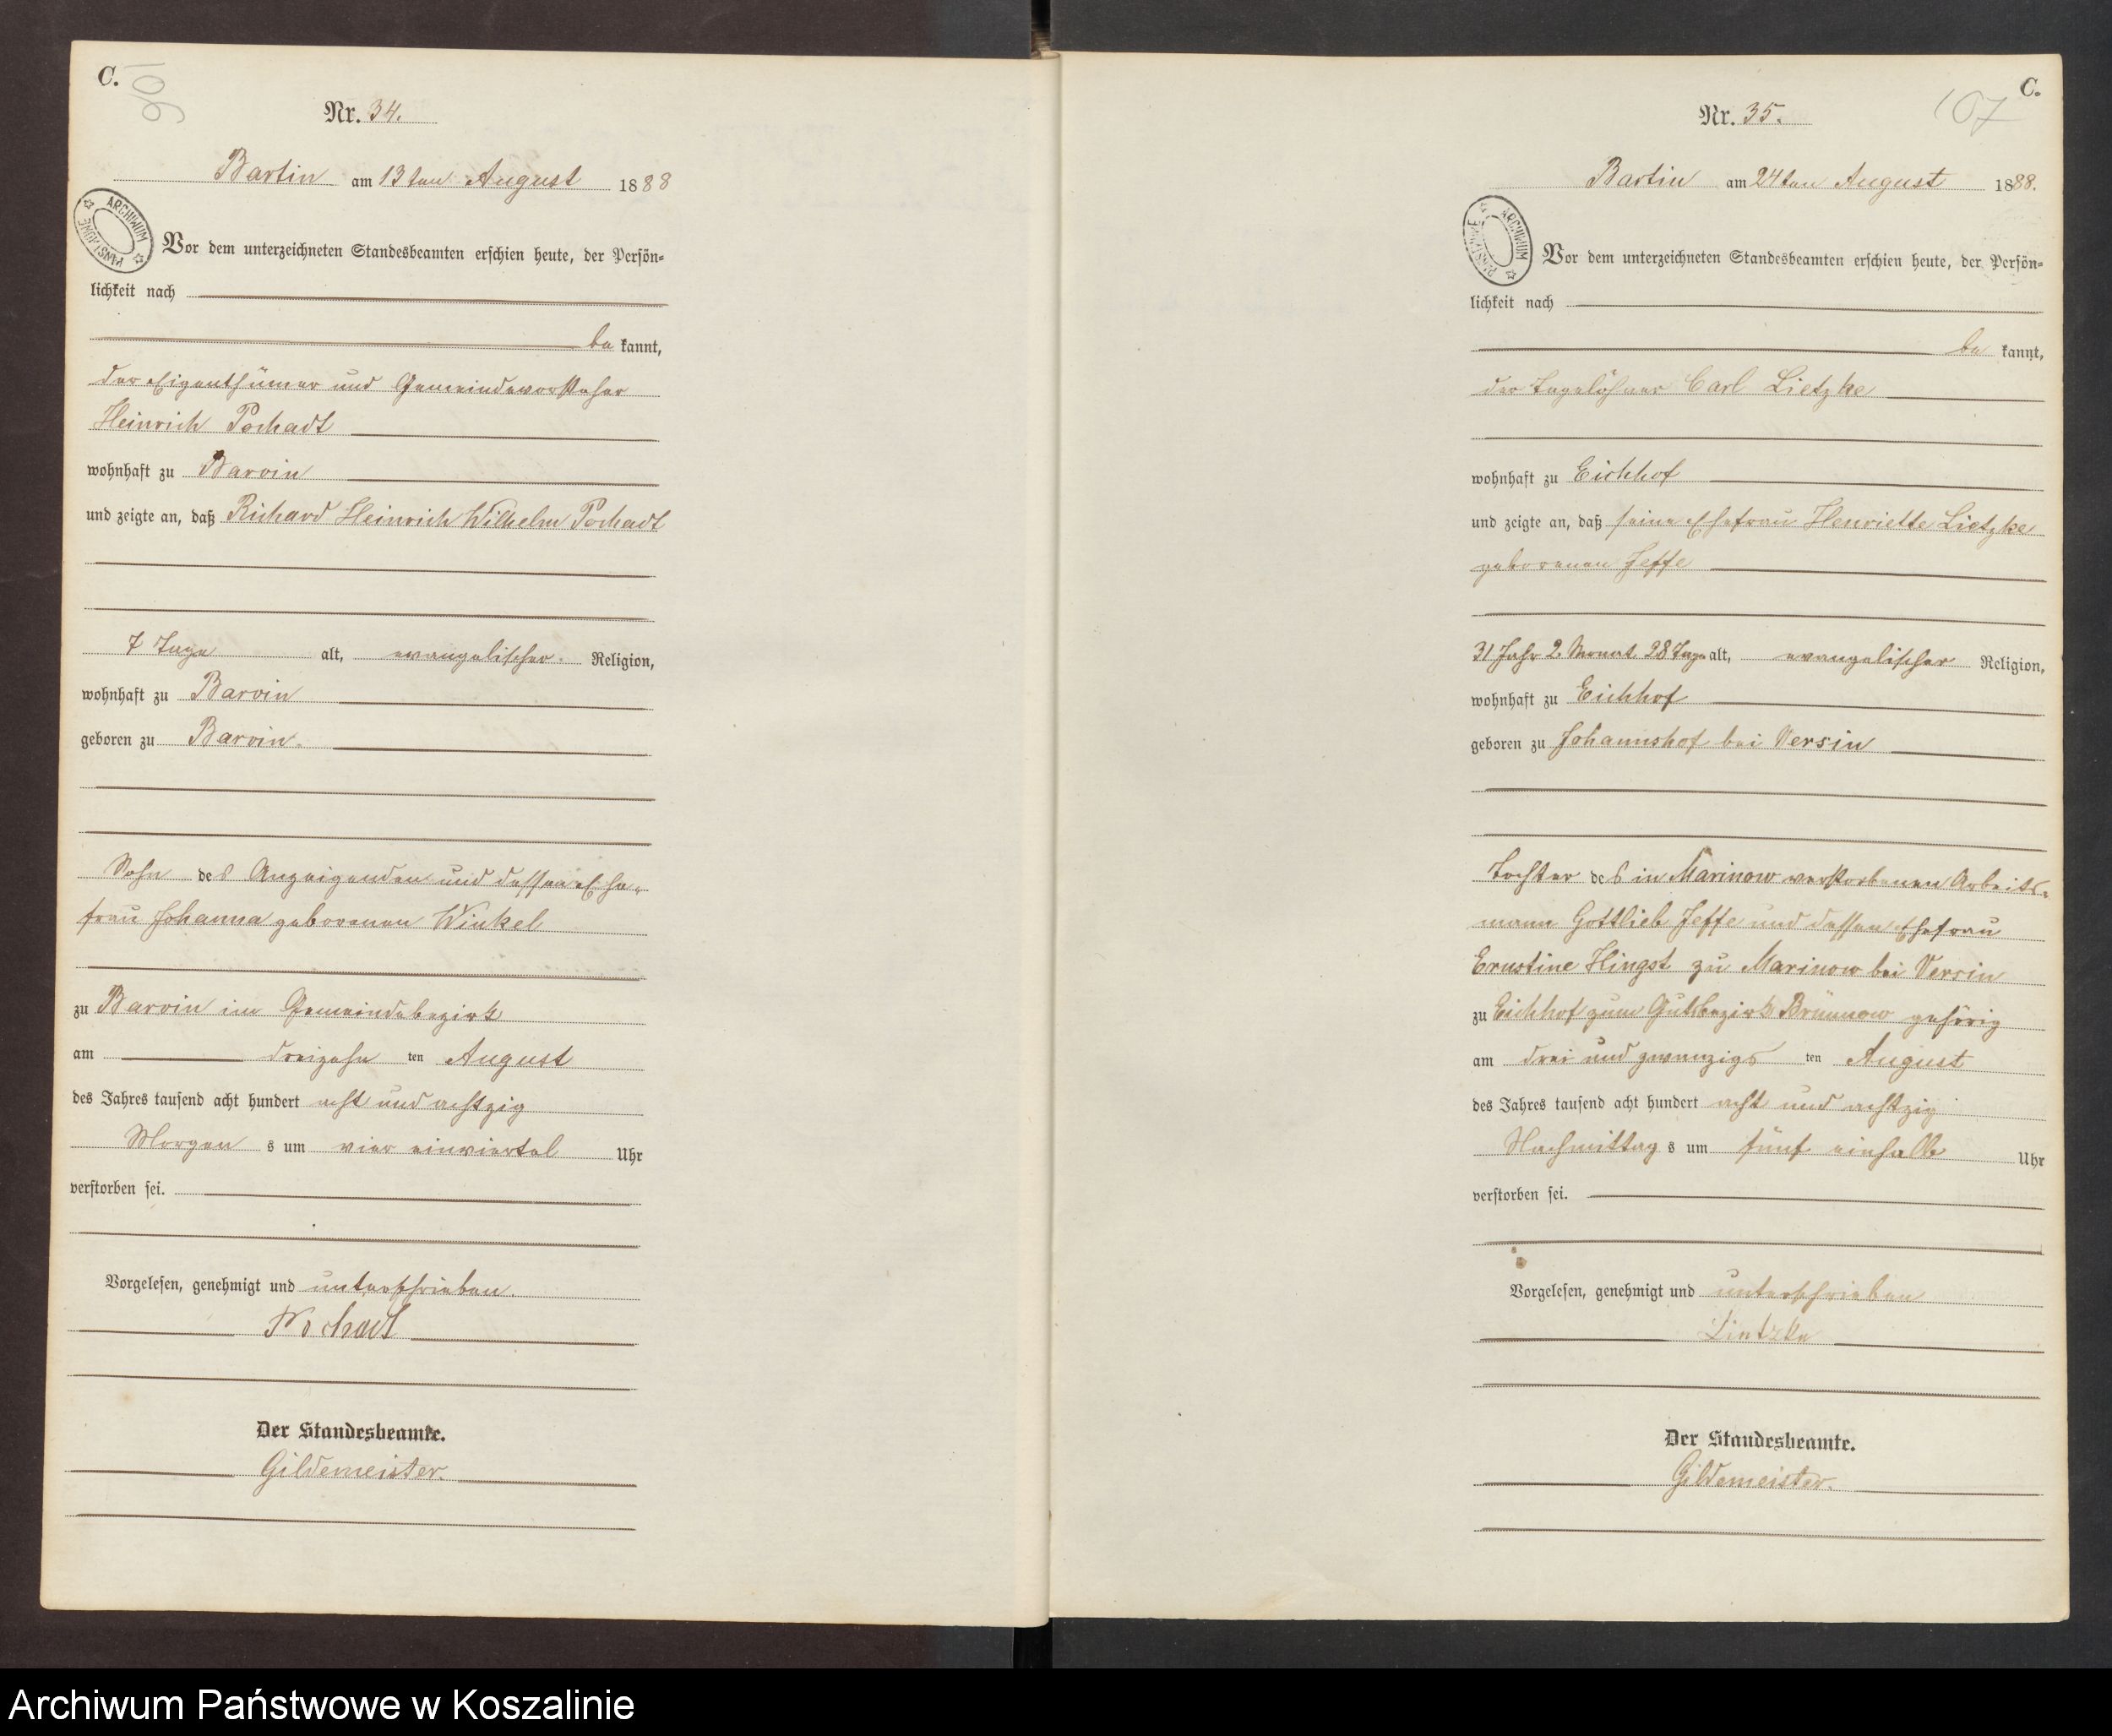 C.
106
Nr. 34.
Bartin am 13ten August 1888
ARCHIWUM PAŃSTWOWE
Vor dem unterzeichneten Standesbeamten erschien heute, der Persön-
lichkeit nach
be kannt,
der Eigenthümer und Gemeindevorsteher
Heinrich Pochadt
wohnhaft zu Barvin
und zeigte an, daß Richard Heinrich Wilhelm Pochadt
7 Tage alt, evangelischer Religion,
wohnhaft zu Barvin
geboren zu Barvin.
Sohn des Anzeigenden und dessen Ehe-
frau Johanna geborenen Winkel
zu Barvin im Gemeindebezirk
am dreizehn ten August
des Jahres tausend acht hundert acht und achtzig
Morgen s um vier einviertel Uhr
verstorben sei.
Vorgelesen, genehmigt und unterschrieben.
Pochadt
Der Standesbeamte.
Gildemeister.
C.
107
Nr. 35.
Bartin am 24ten August 1888.
ARCHIWUM PAŃSTWOWE
Vor dem unterzeichneten Standesbeamten erschien heute, der Persön-
lichkeit nach
be kannt,
der Tagelöhner Carl Lietzke
wohnhaft zu Eichhof
und zeigte an, daß seine Ehefrau Henriette Lietzke
geborenen Jeffe
31 Jahr 2 Monat 28 Tage alt, evangelischer Religion,
wohnhaft zu Eichhof
geboren zu Johannshof bei Versin
Tochter des in Marinow verstorbenen Arbeits-
mann Gottlieb Jeffe und dessen Ehefrau
Ernstine Hingst zu Marinow bei Versin
zu Eichhof zum Gutsbezirk Brünnow gehörig
am drei und zwanzigs ten August
des Jahres tausend acht hundert acht und achtzig
Nachmittag s um fünf einhalb Uhr
verstorben sei.
Vorgelesen, genehmigt und unterschrieben
Lietzke
Der Standesbeamte.
Gildemeister.
Archiwum Państwowe w Koszalinie